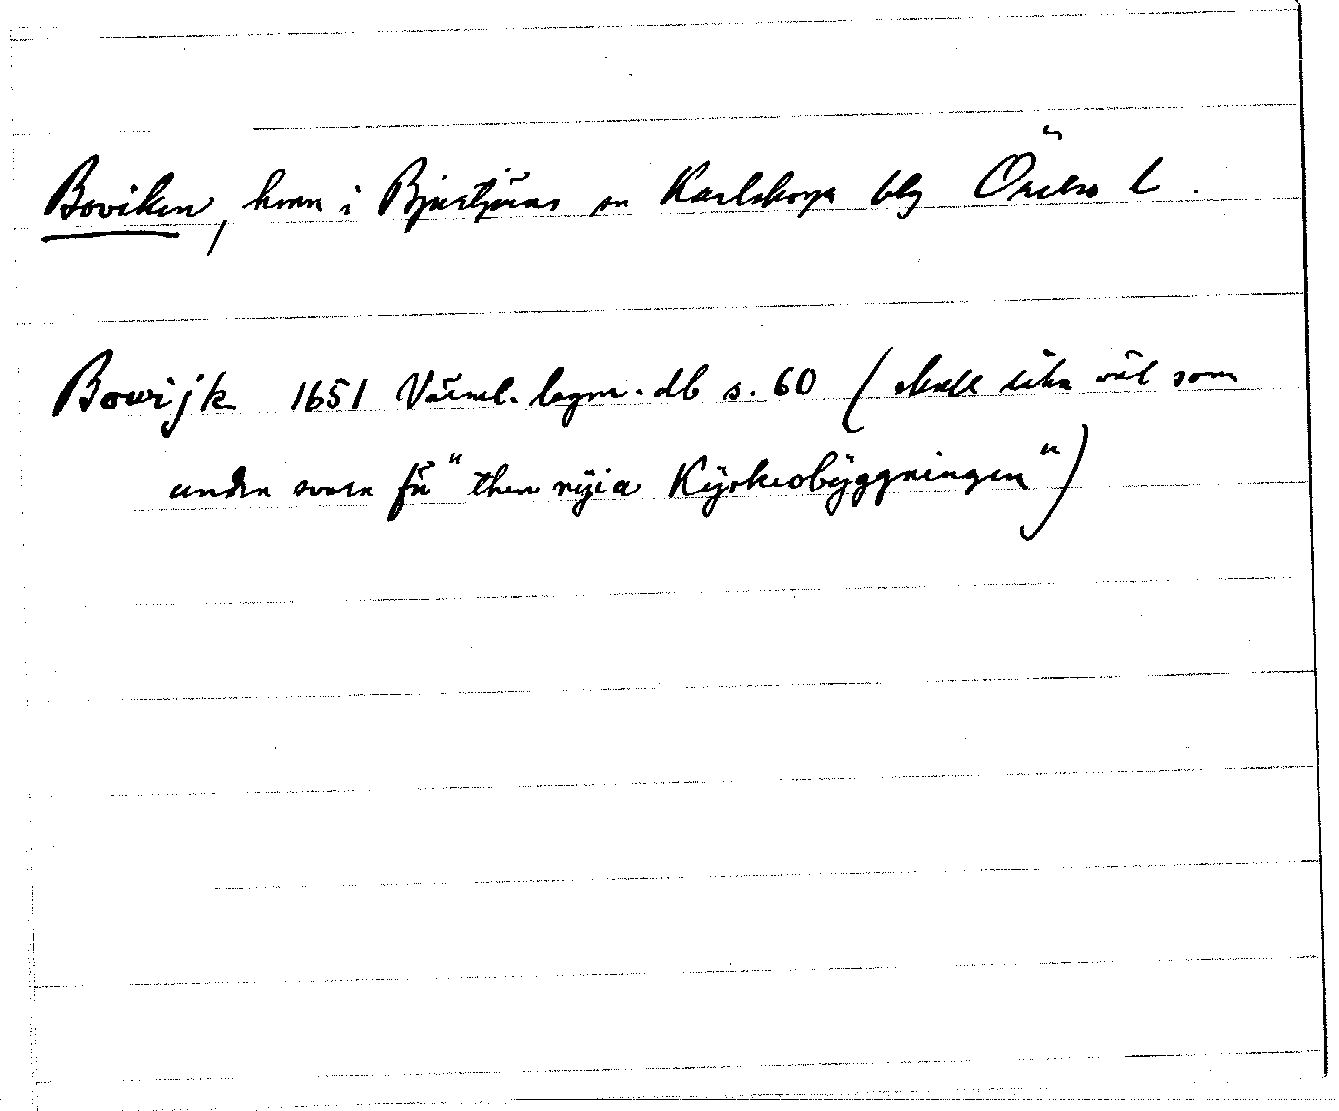 Boviken, hmn i Bjurtjärns sn Karlskoga bg Örebro l.
Bowijk 1651 Värml. lagm. db s. 60 (skall lika väl som
andra svara för "then nÿia Kÿrkiobÿggningen")